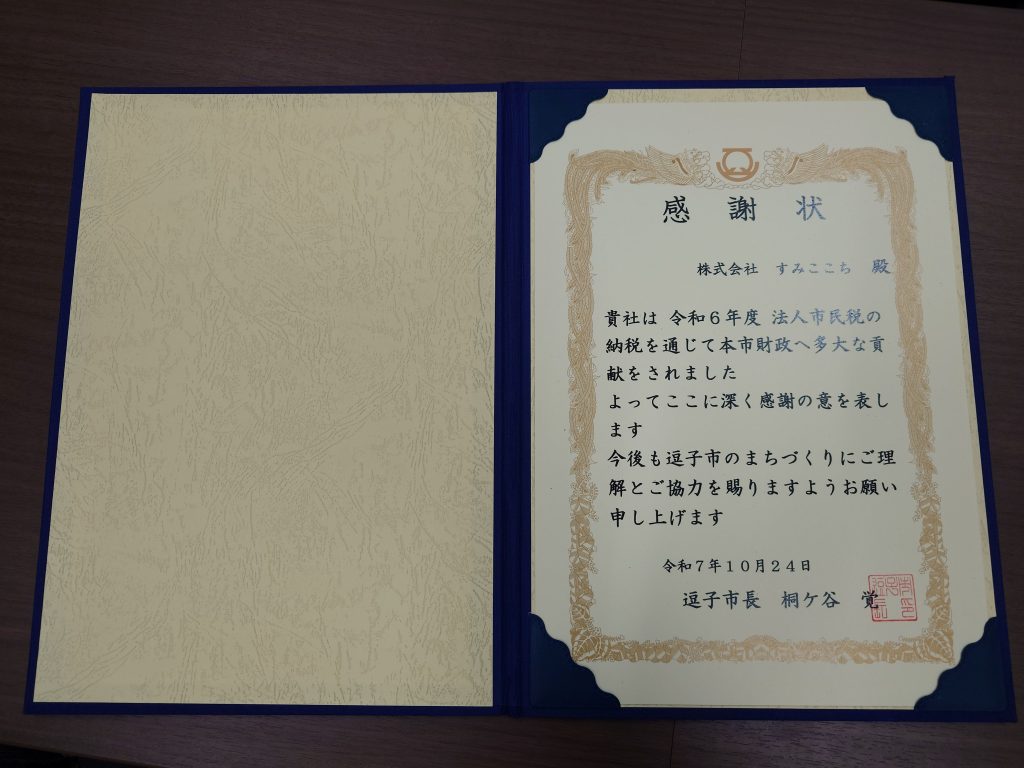 感謝状
株式会社 すみここち 殿
貴社は 令和６年度 法人市民税の
納税を通じて本市財政へ多大な貢
献をされました
よってここに深く感謝の意を表し
ます
今後も逗子市のまちづくりにご理
解とご協力を賜りますようお願い
申し上げます
令和７年１０月２４日
逗子市長 桐ケ谷 覚